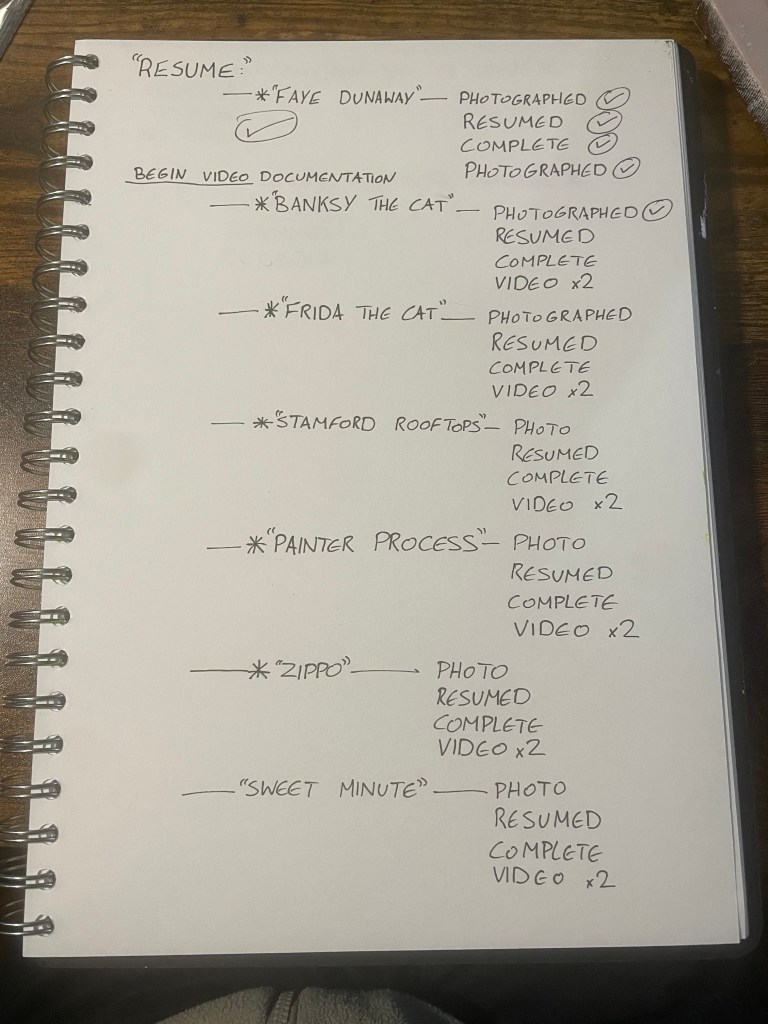 "RESUME:"
—*"FAYE DUNAWAY"— PHOTOGRAPHED ✓
✓ RESUMED ✓
COMPLETE ✓
BEGIN VIDEO DOCUMENTATION PHOTOGRAPHED ✓
—*"BANKSY THE CAT"— PHOTOGRAPHED ✓
RESUMED
COMPLETE
VIDEO x2
—*"FRIDA THE CAT"— PHOTOGRAPHED
RESUMED
COMPLETE
VIDEO x2
—*"STAMFORD ROOFTOPS"— PHOTO
RESUMED
COMPLETE
VIDEO x2
—*"PAINTER PROCESS"— PHOTO
RESUMED
COMPLETE
VIDEO x2
—*"ZIPPO"— PHOTO
RESUMED
COMPLETE
VIDEO x2
—"SWEET MINUTE"— PHOTO
RESUMED
COMPLETE
VIDEO x2